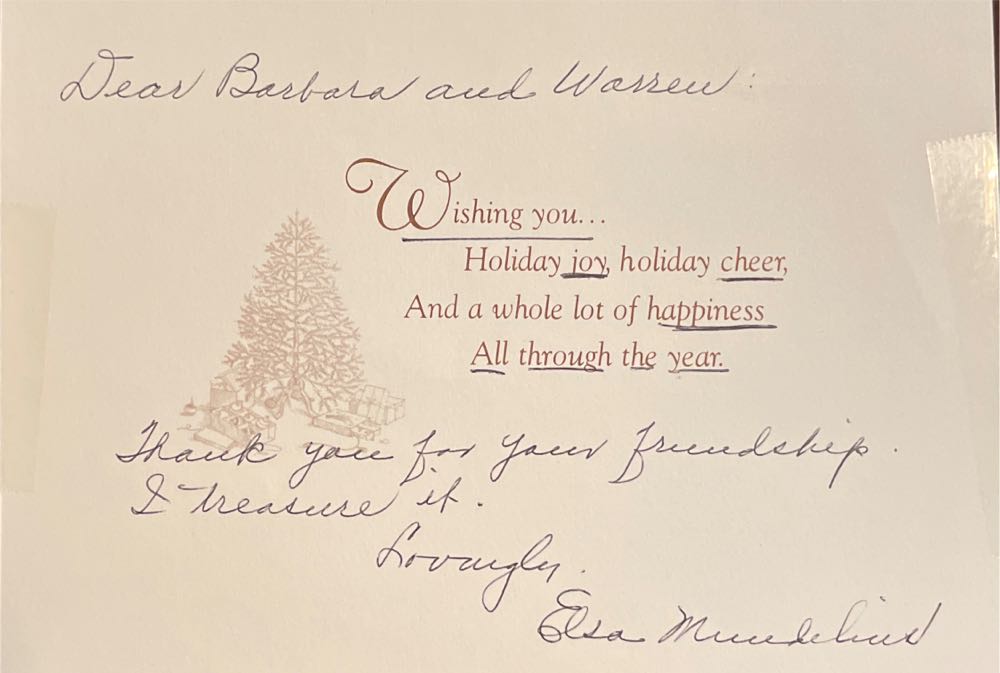 Dear Barbara and Warren:
Wishing you...
Holiday joy, holiday cheer,
And a whole lot of happiness
All through the year.
Thank you for your friendship.
I treasure it.
Lovingly,
Elsa Mundelius